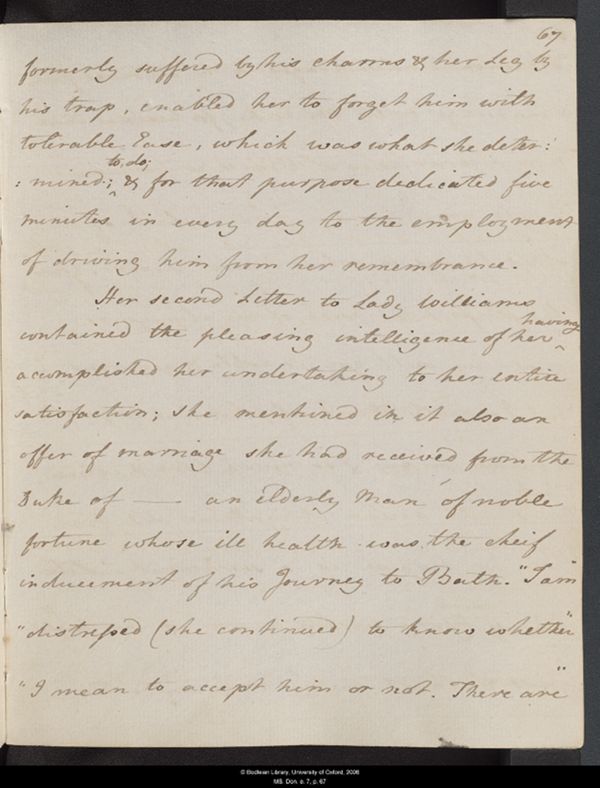 67
formerly suffered by his charms & her Leg by
his trap, enabled her to forget him with
tolerable Ease, which was what she deter:
to do;
: mined; & for that purpose dedicated five
minutes in every day to the employment
of driving him from her remembrance.
Her second Letter to Lady Williams
having
contained the pleasing intelligence of her
accomplished her undertaking to her entire
satisfaction; she mentioned in it also an
offer of marriage she had received from the
Duke of —— an elderly Man of noble
fortune whose ill health was the cheif
inducement of his Journey to Bath. "I am"
"distressed (she continued) to know whether"
"I mean to accept him or not. There are"
© Bodleian Library, University of Oxford, 2006
MS. Don. e. 7, p. 67